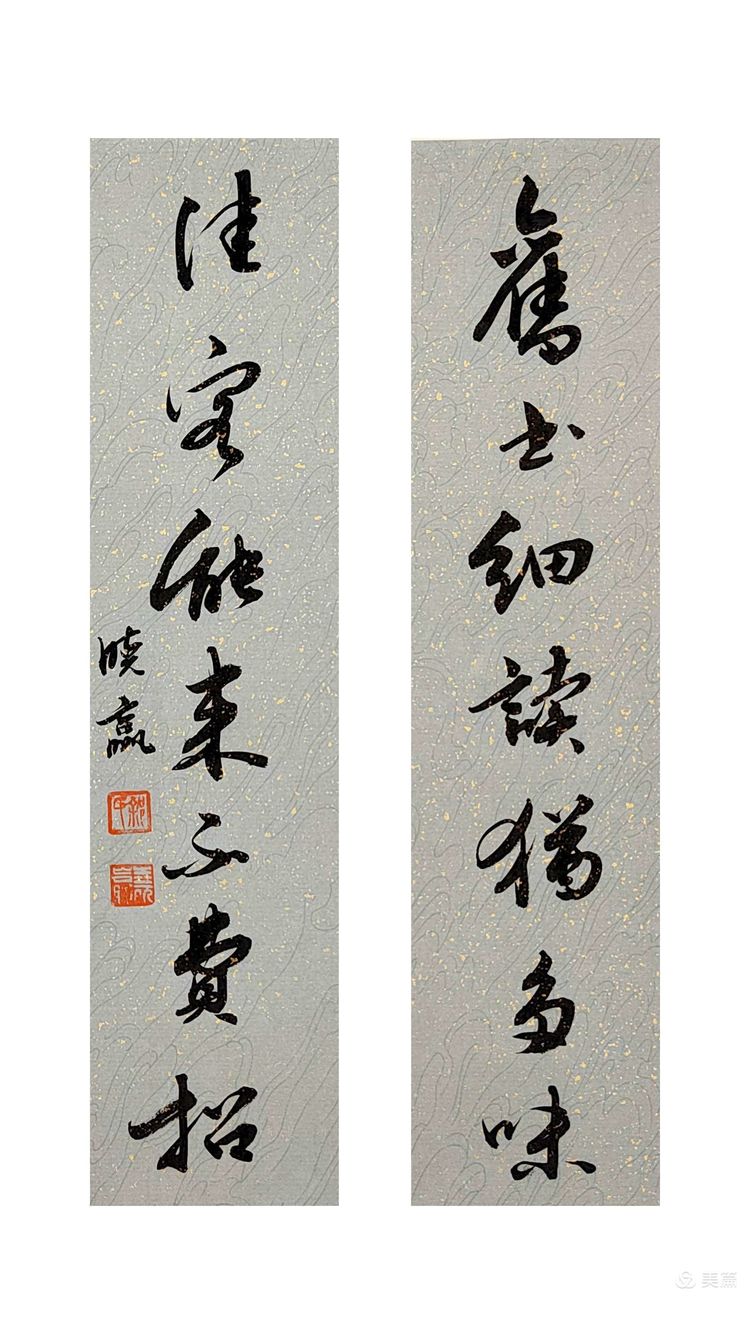 舊書細讀猶多味
佳客能來不費招
曉贏
美篇